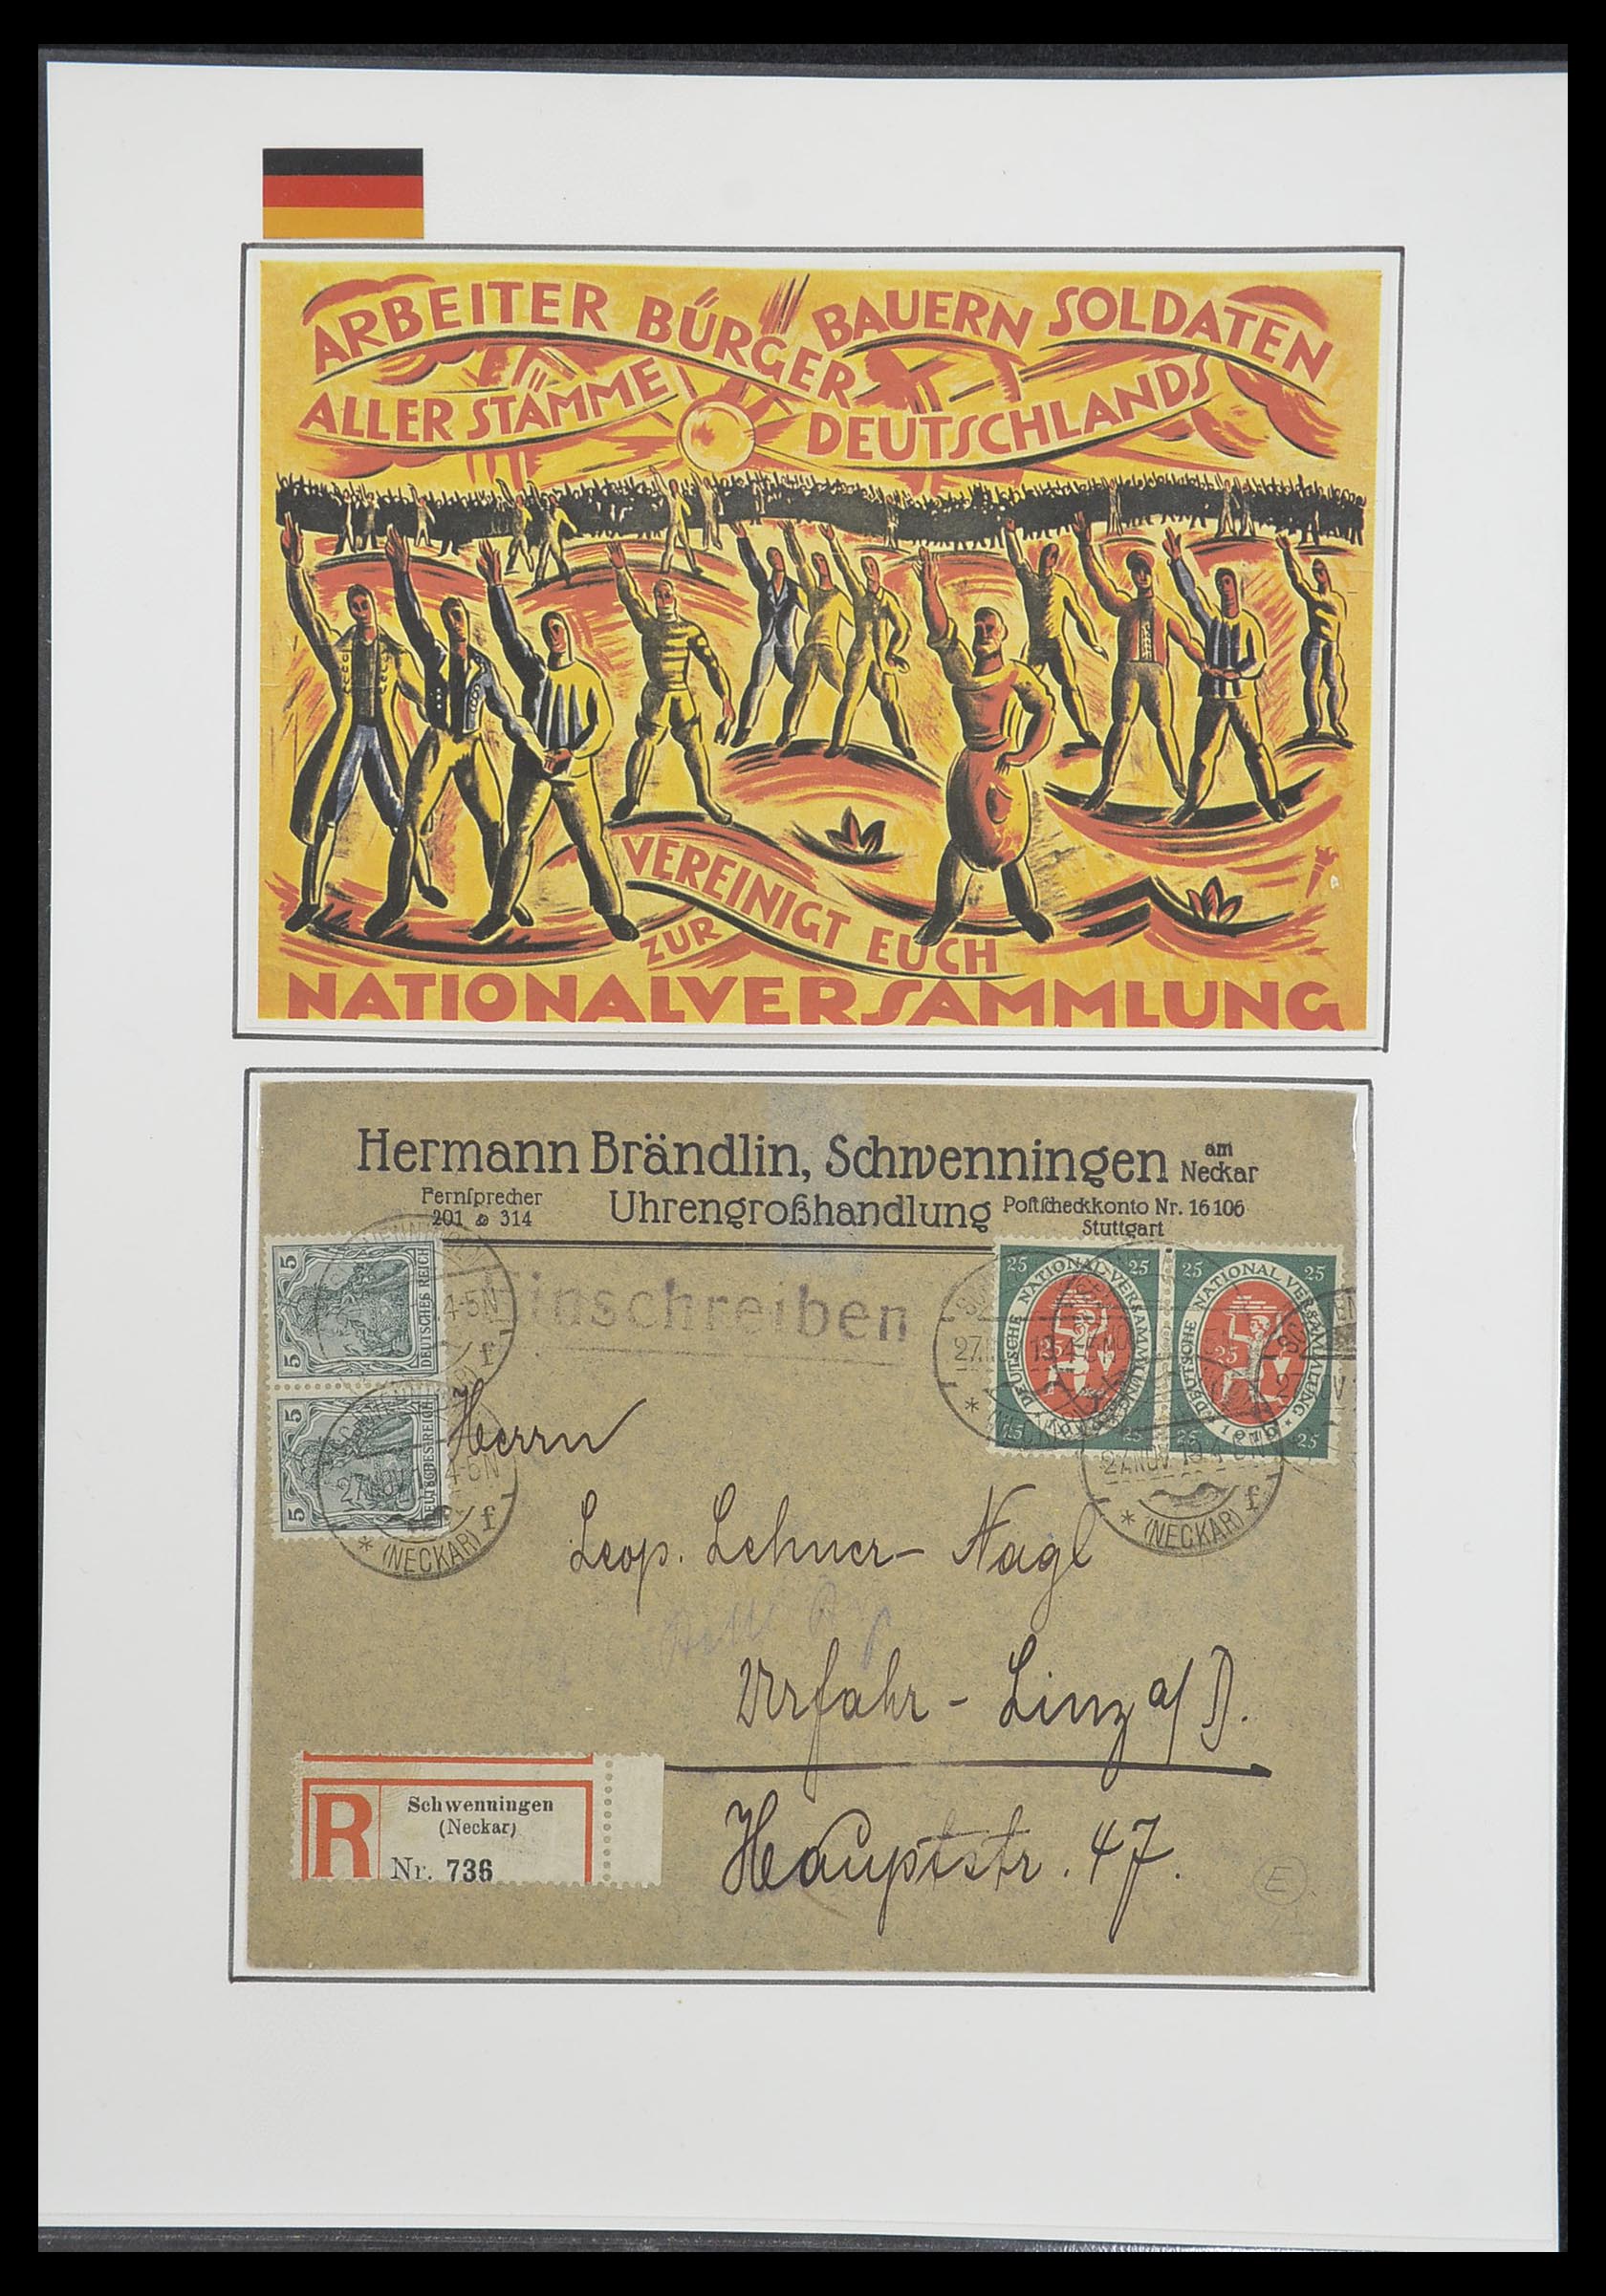 ARBEITER BÜRGER BAUERN SOLDATEN
ALLER STÄMME DEUTSCHLANDS
VEREINIGT EUCH
ZUR
NATIONALVERSAMMLUNG
Hermann Brändlin, Schwenningen am Neckar
Fernsprecher 201 & 314
Uhrengroßhandlung
Postscheckkonto Nr. 16106 Stuttgart
Einschreiben
5 5 DEUTSCHES REICH
5 5 DEUTSCHES REICH
4-5N
f
27.NOV. 4-5N
* (NECKAR) f
25 25 25 25
DEUTSCHE NATIONAL-VERSAMMLUNG
25
25 25 25 25
DEUTSCHE NATIONAL VERSAMMLUNG * 1919
25
27.NOV. 19.4-5N
* (NECKAR) f
Herrn
Leop. Lehner-Nagl
Urfahr - Linz a/D.
Hauptstr. 47.
R
Schwenningen
(Neckar)
Nr. 736
E